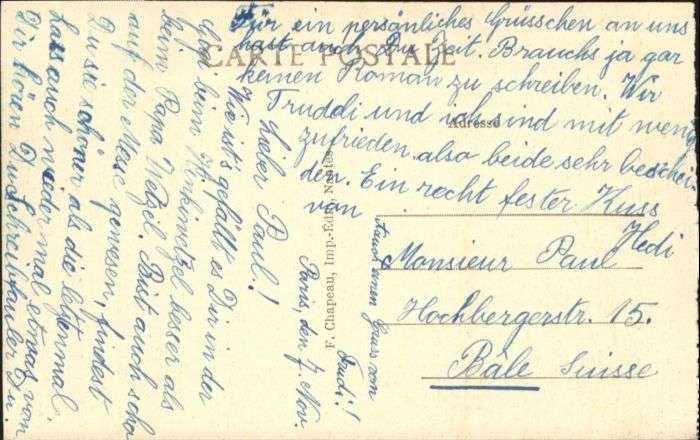 CARTE POSTALE
Adresse
F. Chapeau, Imp.-Édit., Nantes
Paris, den 7. Nov.
Lieber Paul!
Wie ist's gefällt es Dir in der
Gygi beim besser als
beim Papa Wetzel. Bist auch scho
auf der Messe gewesen, findest
Du sie schöner als die letztenmal
Lass auch wieder mal etwas von
Dir hören Du Schreibfauler Du.
Für ein persönliches Grüsschen an uns
hast auch Du Zeit. Brauchs ja gar
keinen Roman zu schreiben. Wir
Truddi und ich sind mit weng
zufrieden also beide sehr beschei
den. Ein recht fester Kuss
von
Hedi
Auch einen Gruss vom
Trudi!
Monsieur Paul
Hochbergerstr. 15.
Bâle Suisse